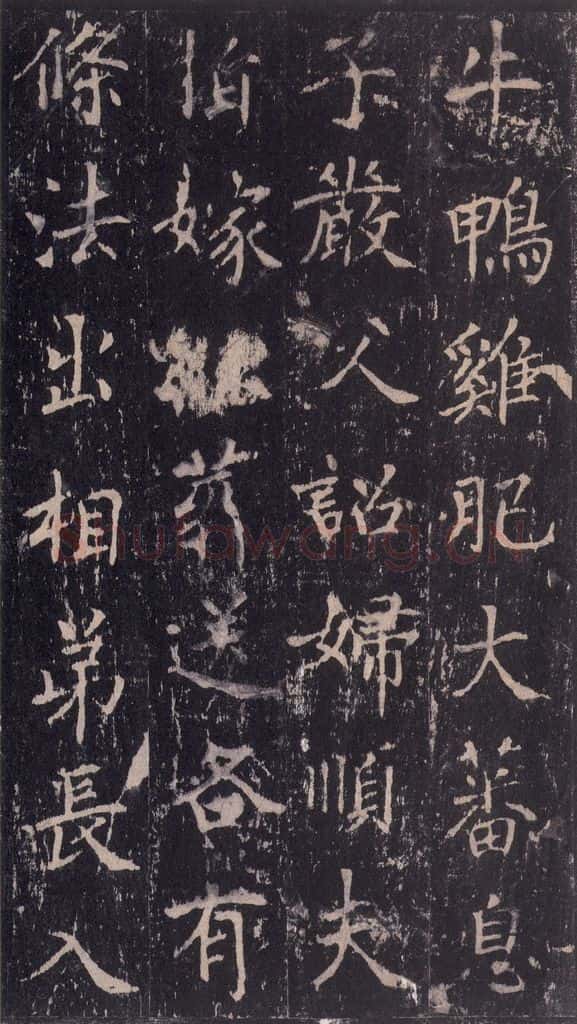 牛鴨雞肥大蕃息
子嚴父詔婦順夫
指嫁葬送各有
條法出相弟長入
shufawang.cn